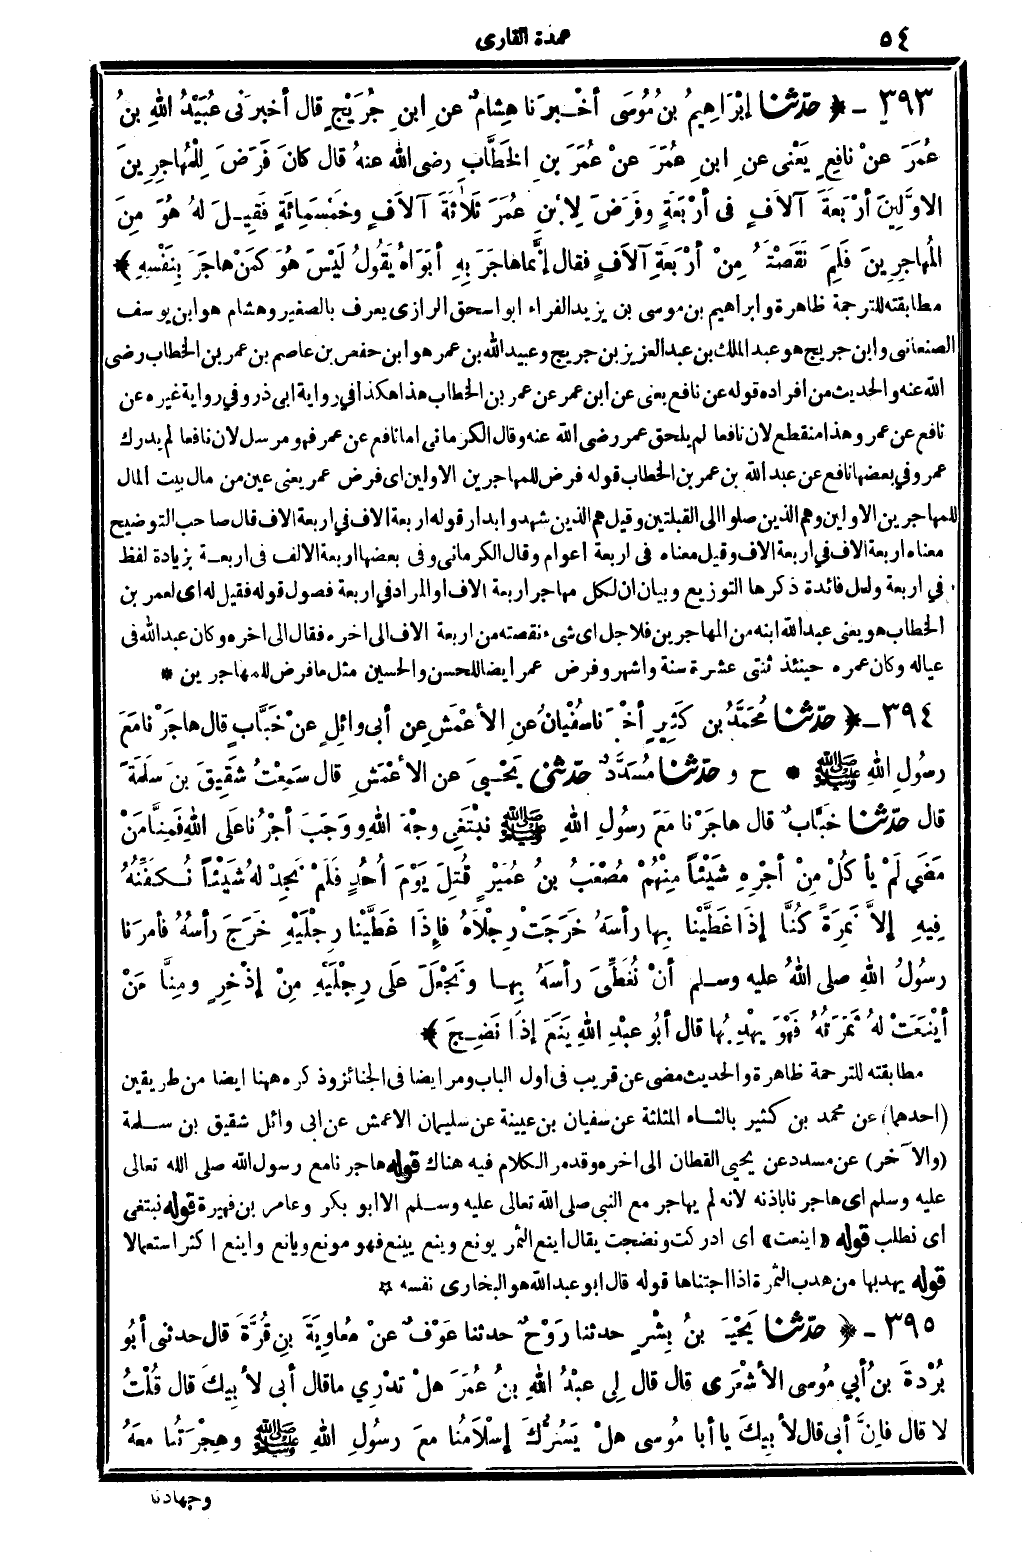 ٥٤
عمدة القارى
٣٩٣ - ﴿ حَدّثنا إبْرَاهِيمُ بنُ مُوسَى أخْبرَنا هِشامٌ عنِ ابنِ جُرَيْجٍ قال أخبرَنى عُبَيْدُ اللهِ بنُ
عُمَرَ عنْ نافِعٍ يَعْنى عنِ ابنِ عُمَرَ عنْ عُمَرَ بنِ الخَطَّابِ رضى الله عنهُ قال كانَ فَرَضَ لِلْمُهاجِرِينَ
الاوَّلِينَ أرْبَعَةَ آلاَفٍ فى أرْبَعَةٍ وفَرَضَ لِابْنِ عُمَرَ ثَلاَثَةَ آلاَفٍ وخَمْسَمِائَةٍ فَقِيلَ لهُ هُوَ مِنَ
المُهاجِرِينَ فَلِمَ نَقَصْتَهُ مِنْ أرْبَعَةِ آلاَفٍ فقال إنَّما هاجَرَ بِهِ أبَوَاهُ يَقُولُ لَيْسَ هُوَ كمَنْ هاجَرَ بِنَفْسِهِ ﴾
مطابقته للترجمة ظاهرة وابراهيم بن موسى بن يزيد الفراء ابو اسحق الرازى يعرف بالصغير وهشام هو ابن يوسف
الصنعانى وابن جريج هو عبد الملك بن عبد العزيز بن جريج وعبيد الله بن عمر هو ابن حفص بن عاصم بن عمر بن الخطاب رضى
الله عنه والحديث من افراده قوله عن نافع يعنى عن ابن عمر عن عمر بن الخطاب هذا هكذا فى رواية ابى ذر وفى رواية غيره عن
نافع عن عمر وهذا منقطع لان نافعا لم يلحق عمر رضى الله عنه وقال الكرمانى اما نافع عن عمر فهو مرسل لان نافعا لم يدرك
عمر وفي بعضها نافع عن عبد الله بن عمر بن الخطاب قوله فرض للمهاجرين الاولين اى فرض عمر يعنى عين من مال بيت المال
للمهاجرين الاولين وهم الذين صلوا الى القبلتين وقيل هم الذين شهدوا بدار قوله اربعة الاف في اربعة الاف قال صاحب التوضيح
معناه اربعة الاف في اربعة الاف وقيل معناه فى اربعة أعوام وقال الكرمانى وفى بعضها اربعة الالف فى اربعة بزيادة لفظ
في اربعة ولعل فائدة ذكرها التوزيع وبيان ان لكل مهاجر اربعة الاف او المراد في اربعة فصول قوله فقيل له اى لعمر بن
الخطاب هو يعنى عبد الله ابنه من المهاجرين فلاجل اى شىء نقصته من اربعة الاف الى اخره فقال الى اخره وكان عبد الله فى
عياله وكان عمره حينئذ ثنتى عشرة سنة واشهر وفرض عمر ايضا للحسن والحسين مثل ما فرض للمهاجرين *
٣٩٤ - ﴿ حَدّثنا مُحَمَّدُ بن كَثِيرٍ أخْبَرَنا سُفْيانُ عنِ الأعْمَشِ عن أبى وائِلٍ عنْ خَبَّابٍ قال هاجَرْنا مَعَ
رسُولِ اللهِ ﷺ * ح وحدّثنا مُسَدَّدٌ حدّثنى يَحْييَ عن الأعْمَشِ قال سَمِعْتُ شَقِيقَ بنَ سَلَمَةَ
قال حدّثنا خَبَّابٌ قال هاجَرْنا مَعَ رسُولِ اللهِ ﷺ نبْتَغَي وجْهَ اللهِ ووَجَبَ أجْرُنا علَى اللهِ فَمِنَّا مَنْ
مَضَي لَمْ يأْكُلْ مِنْ أجْرِهِ شَيْئاً مِنْهُمْ مُصْعَبُ بنُ عُمَيْرٍ قُتِلَ يَوْمَ أُحُدٍ فَلَمْ نَجِدْ لهُ شَيْئاً نُكَفِّنُهُ
فِيهِ إلاَّ نَمِرَةً كُنَّا إذَا غَطَّيْنا بِها رأسَهُ خَرَجَتْ رِجْلاَهُ فإذَا غَطَّيْنا رِجْلَيْهِ خَرَجَ رأسُهُ فأمرَنا
رسُولُ اللهِ صلى اللهُ عليه وسلم أنْ نُغَطِّىَ رأسَهُ بِها ونَجْعَلَ عَلَى رِجْلَيْهِ مِنْ إذْخِرٍ ومِنَّا مَنْ
أيْنَعَتْ لهُ ثَمَرَتُهُ فَهْوَ يهْدِبُها قال أبُو عبْدِ اللهِ يَنَعَ إذَا نَضِجَ ﴾
مطابقته للترجمة ظاهرة والحديث مضى عن قريب فى اول الباب ومر ايضا فى الجنائز وذكره ههنا ايضا من طريقين
(احدهما) عن محمد بن كثير بالثاء المثلثة عن سفيان بن عيينة عن سليمان الاعمش عن ابى وائل شقيق بن سلمة
(والآخر) عن مسدد عن يحيى القطان الى اخره وقد مر الكلام فيه هناك قوله هاجرنا مع رسول الله صلى الله تعالى
عليه وسلم اى هاجرنا باذنه لانه لم يهاجر مع النبى صلى الله تعالى عليه وسلم الا ابو بكر وعامر بن فهيرة قوله نبتغى
اى نطلب قوله «اينعت» اى ادركت ونضجت يقال اينع الثمر يونع وينع يينع فهو مونع ويانع واينع اكثر استعمالا
قوله يهدبها من هدب الثمرة اذا اجتناها قوله قال ابو عبد الله هو البخارى نفسه ☆
٣٩٥ - ﴿ حَدّثنا يَحْيَ بنُ بِشْرٍ حدثنا رَوْحٌ حدثنا عَوْفٌ عنْ مُعاوِيَةَ بنِ قُرَّةَ قال حدثنى أبُو
بُرْدَةَ بنُ أبي مُوسى الأشْعَرِى قال قال لِى عبْدُ اللهِ بنُ عُمَرَ هلْ تدْرِي ما قال أبى لأ بِيكَ قال قُلْتُ
لا قال فإنَّ أبى قال لأ بِيكَ يا أبا مُوسى هلْ يَسُرُّكَ إسْلاَمُنا معَ رسُولِ اللهِ ﷺ وهِجْرَتُنا معَهُ
وجهادنا